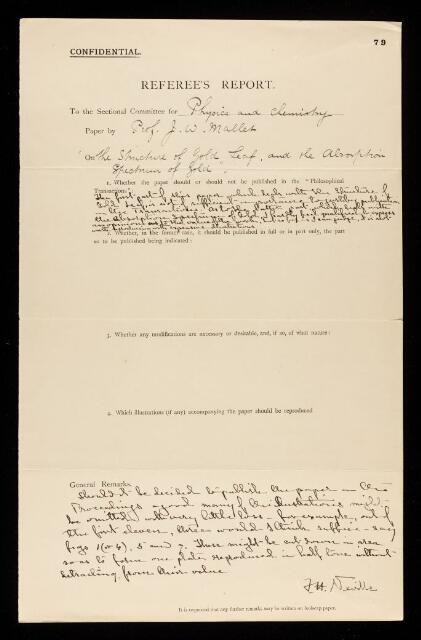 79
CONFIDENTIAL.
REFEREE'S REPORT.
To the Sectional Committee for Physics and Chemistry
Paper by Prof. J. W. Mallet
On the Structure of Gold Leaf, and the Absorption
Spectrum of Gold.
1. Whether the paper should or should not be published in the "Philosophical
Transactions":
The first part of this paper which deals with the structure of
Gold leaf, is not of sufficient importance to justify publication
in the Transactions.
the Absorption Spectrum of Gold
2. Whether, in the former case, it should be published in full or in part only, the part
so to be published being indicated:
3. Whether any modifications are necessary or desirable, and, if so, of what nature:
4. Which illustrations (if any) accompanying the paper should be reproduced
General Remarks.
Should it be decided to publish the paper in the
Proceedings a good many of the illustrations might
be omitted with very little loss, for example, out of
the first eleven, three would I think suffice – say
figs 1 (or 6), 5 and 7. These might be cut down in area
so as to form one plate reproduced in half tone without
detracting from their value
F.H. Neville
It is requested that any further remarks may be written on foolscap paper.